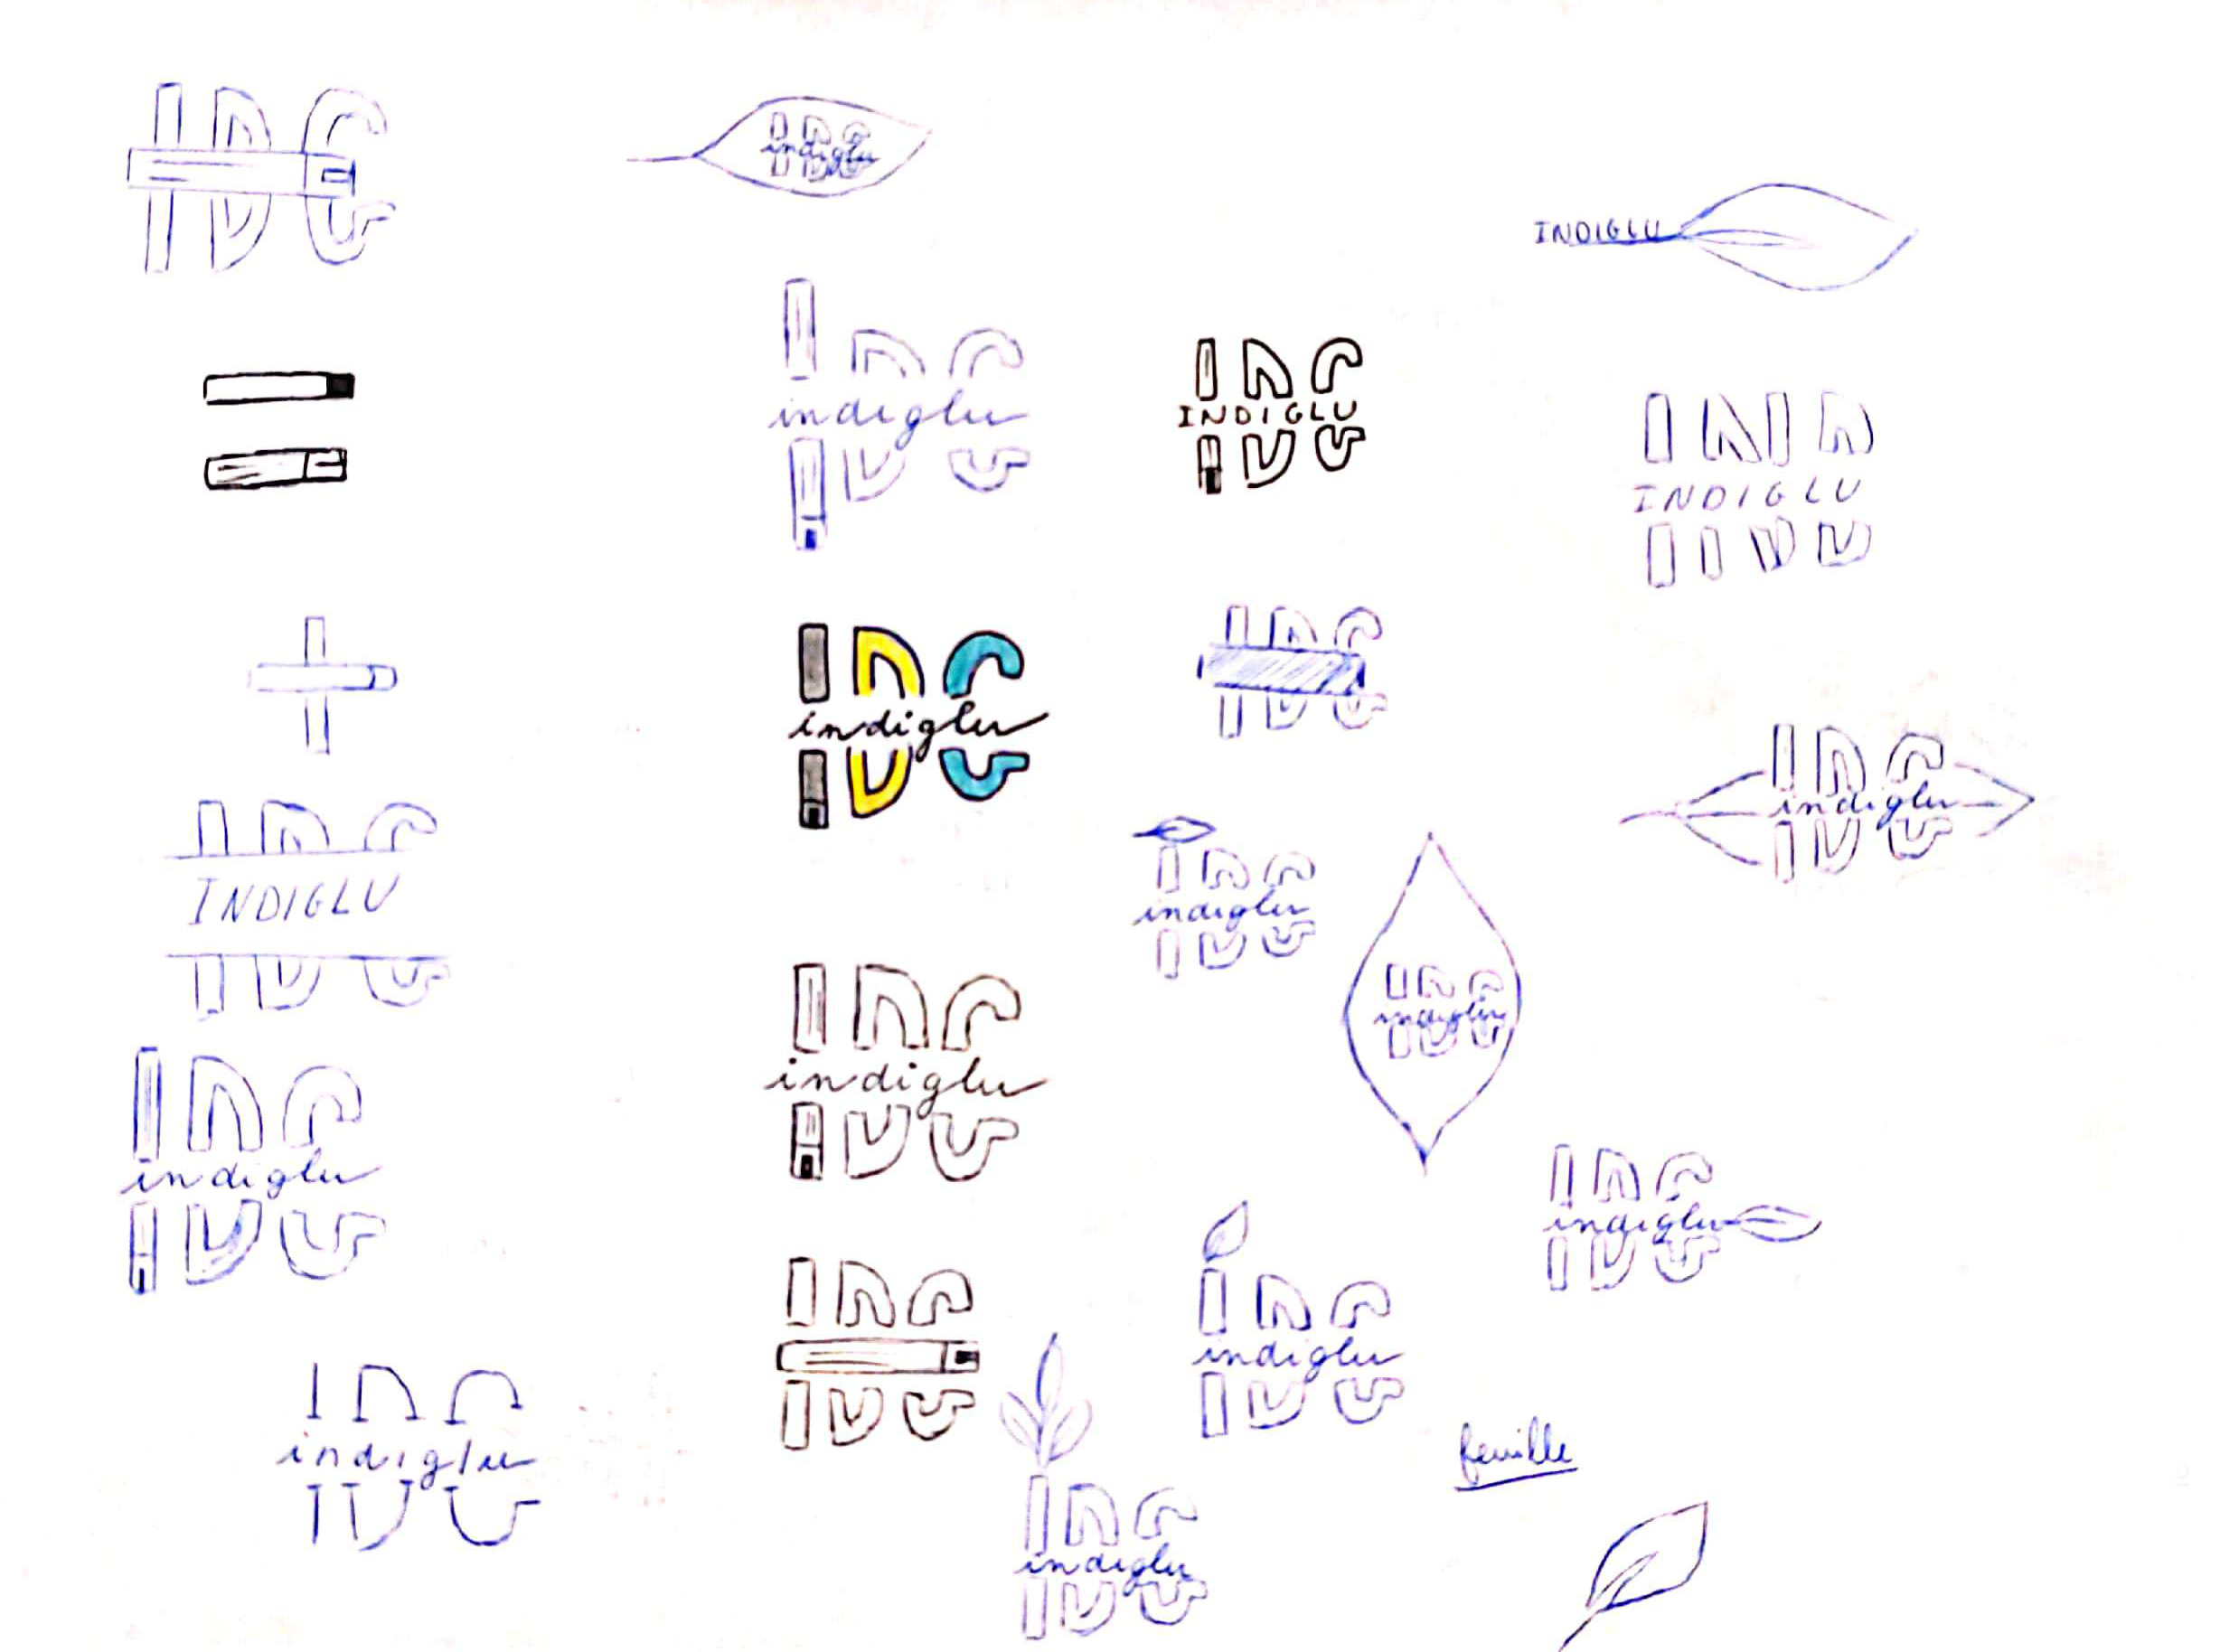 IDG
IDG
indiglu
INDIGLU
IDG
indiglu
IDG
INDIGLU
IND
INDIGLU
IDG
indiglu
IDG
IDG
indiglu
IDG
INDIGLU
IDG
indiglu
IDG
indiglu
IDG
indiglu
IDG
indiglu
IDG
indiglu
IDG
IDG
indiglu
IDG
indiglu
IDG
indiglu
feuille